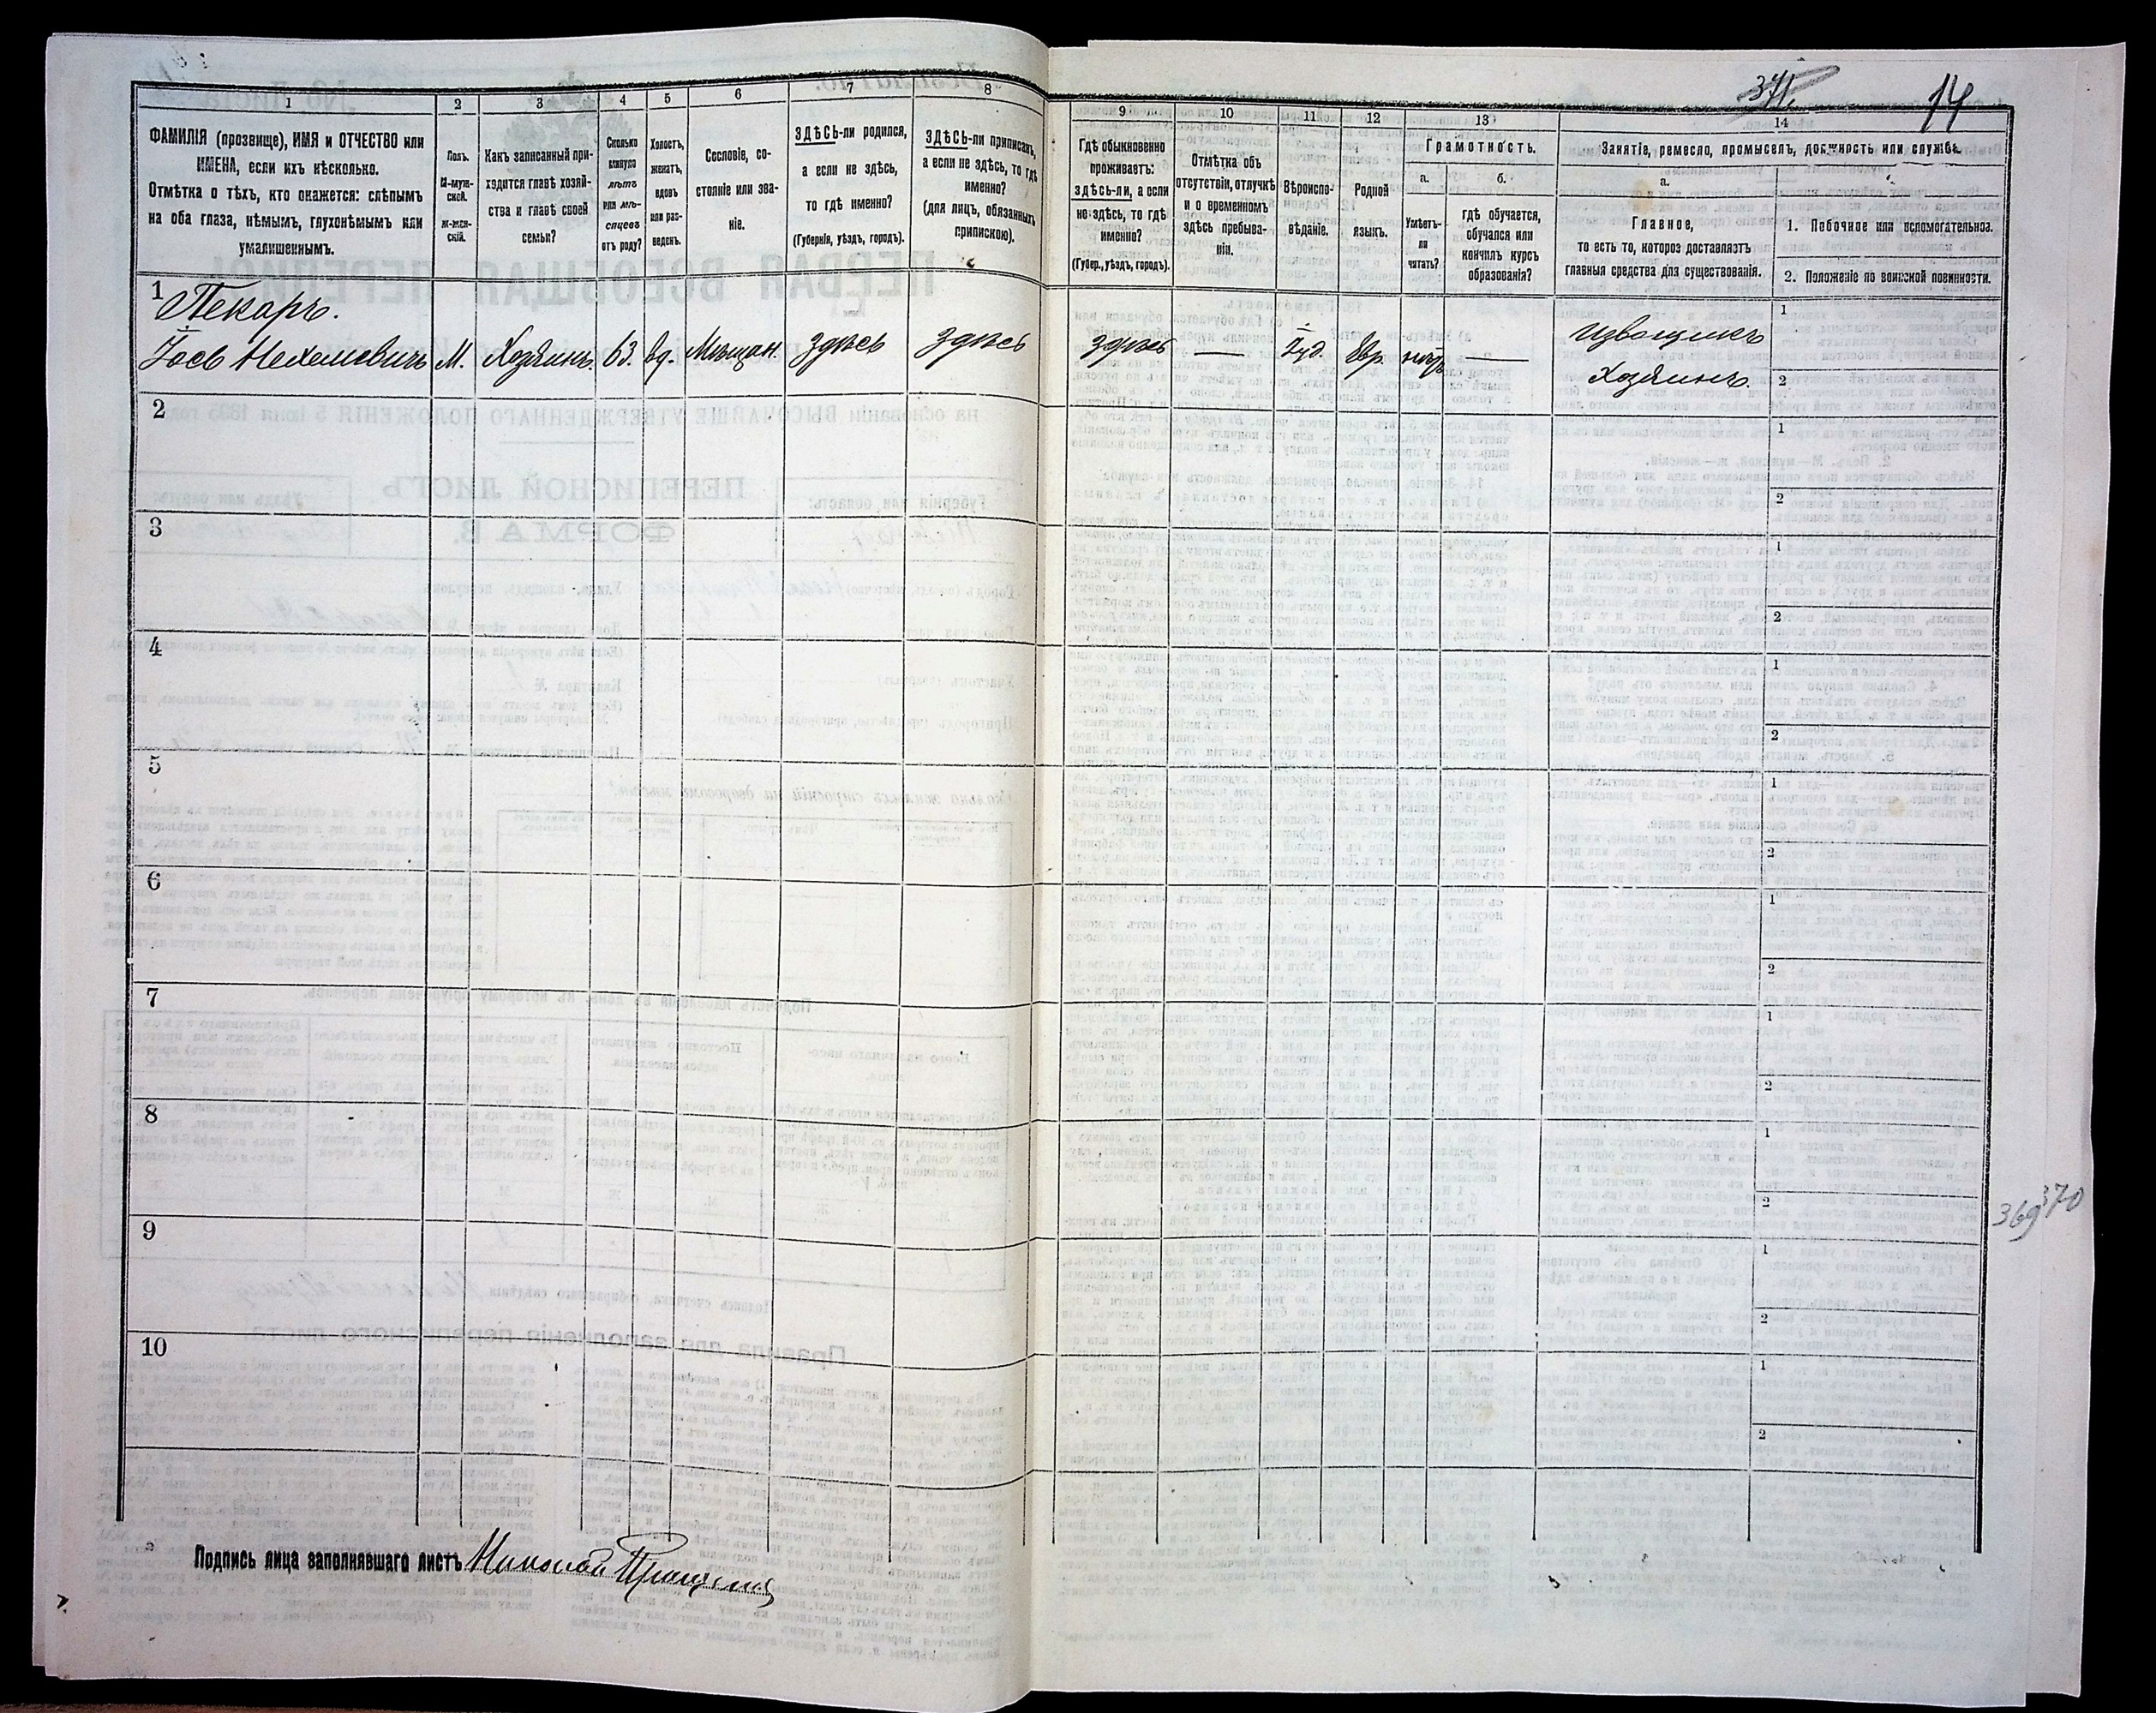 371
14
1
2
3
4
5
6
7
8
ФАМИЛІЯ (прозвище), ИМЯ и ОТЧЕСТВО или
ИМЕНА, если ихъ нѣсколько.
Отмѣтка о тѣхъ, кто окажется: слѣпымъ
на оба глаза, нѣмымъ, глухонѣмымъ или
умалишеннымъ.
Полъ.
М-муж-
ской.
ж-жен-
скій.
Какъ записанный при-
ходится главѣ хозяй-
ства и главѣ своей
семьи?
Сколько
минуло
лѣтъ
или мѣ-
сяцевъ
отъ роду?
Холостъ,
женатъ,
вдовъ
или раз-
веденъ.
Сословіе, со-
стояніе или зва-
ніе.
ЗДѢСЬ-ли родился,
а если не здѣсь,
то гдѣ именно?
(Губернія, уѣздъ, городъ).
ЗДѢСЬ-ли приписанъ,
а если не здѣсь, то гдѣ
именно?
(для лицъ, обязанныхъ
припискою).
9
10
11
12
13
14
Гдѣ обыкновенно
проживаетъ:
здѣсь-ли, а если
не здѣсь, то гдѣ
именно?
(Губер., уѣздъ, городъ).
Отмѣтка объ
отсутствіи, отлучкѣ
и о временномъ
здѣсь пребыва-
ніи.
Вѣроиспо-
вѣданіе.
Родной
языкъ.
Грамотность.
а.
б.
Умѣетъ-
ли
читать?
гдѣ обучается,
обучался или
кончилъ курсъ
образованія?
Занятіе, ремесло, промыселъ, должность или служба.
а.
Главное,
то есть то, которое доставляетъ
главныя средства для существованія.
1. Побочное или вспомогательное.
2. Положеніе по воинской повинности.
1
Пекарь.
Іось Нехемевичъ М. Хозяинъ. 63. вд. Мѣщан. здѣсь здѣсь здѣсь — Іуд. Евр. нѣтъ — извощикъ
хозяинъ.
1
2
2
1
2
3
1
2
4
1
2
5
1
2
6
1
2
7
1
2
8
1
2
9
1
2
10
1
2
369
370
Подпись лица заполнявшаго листъ Николай